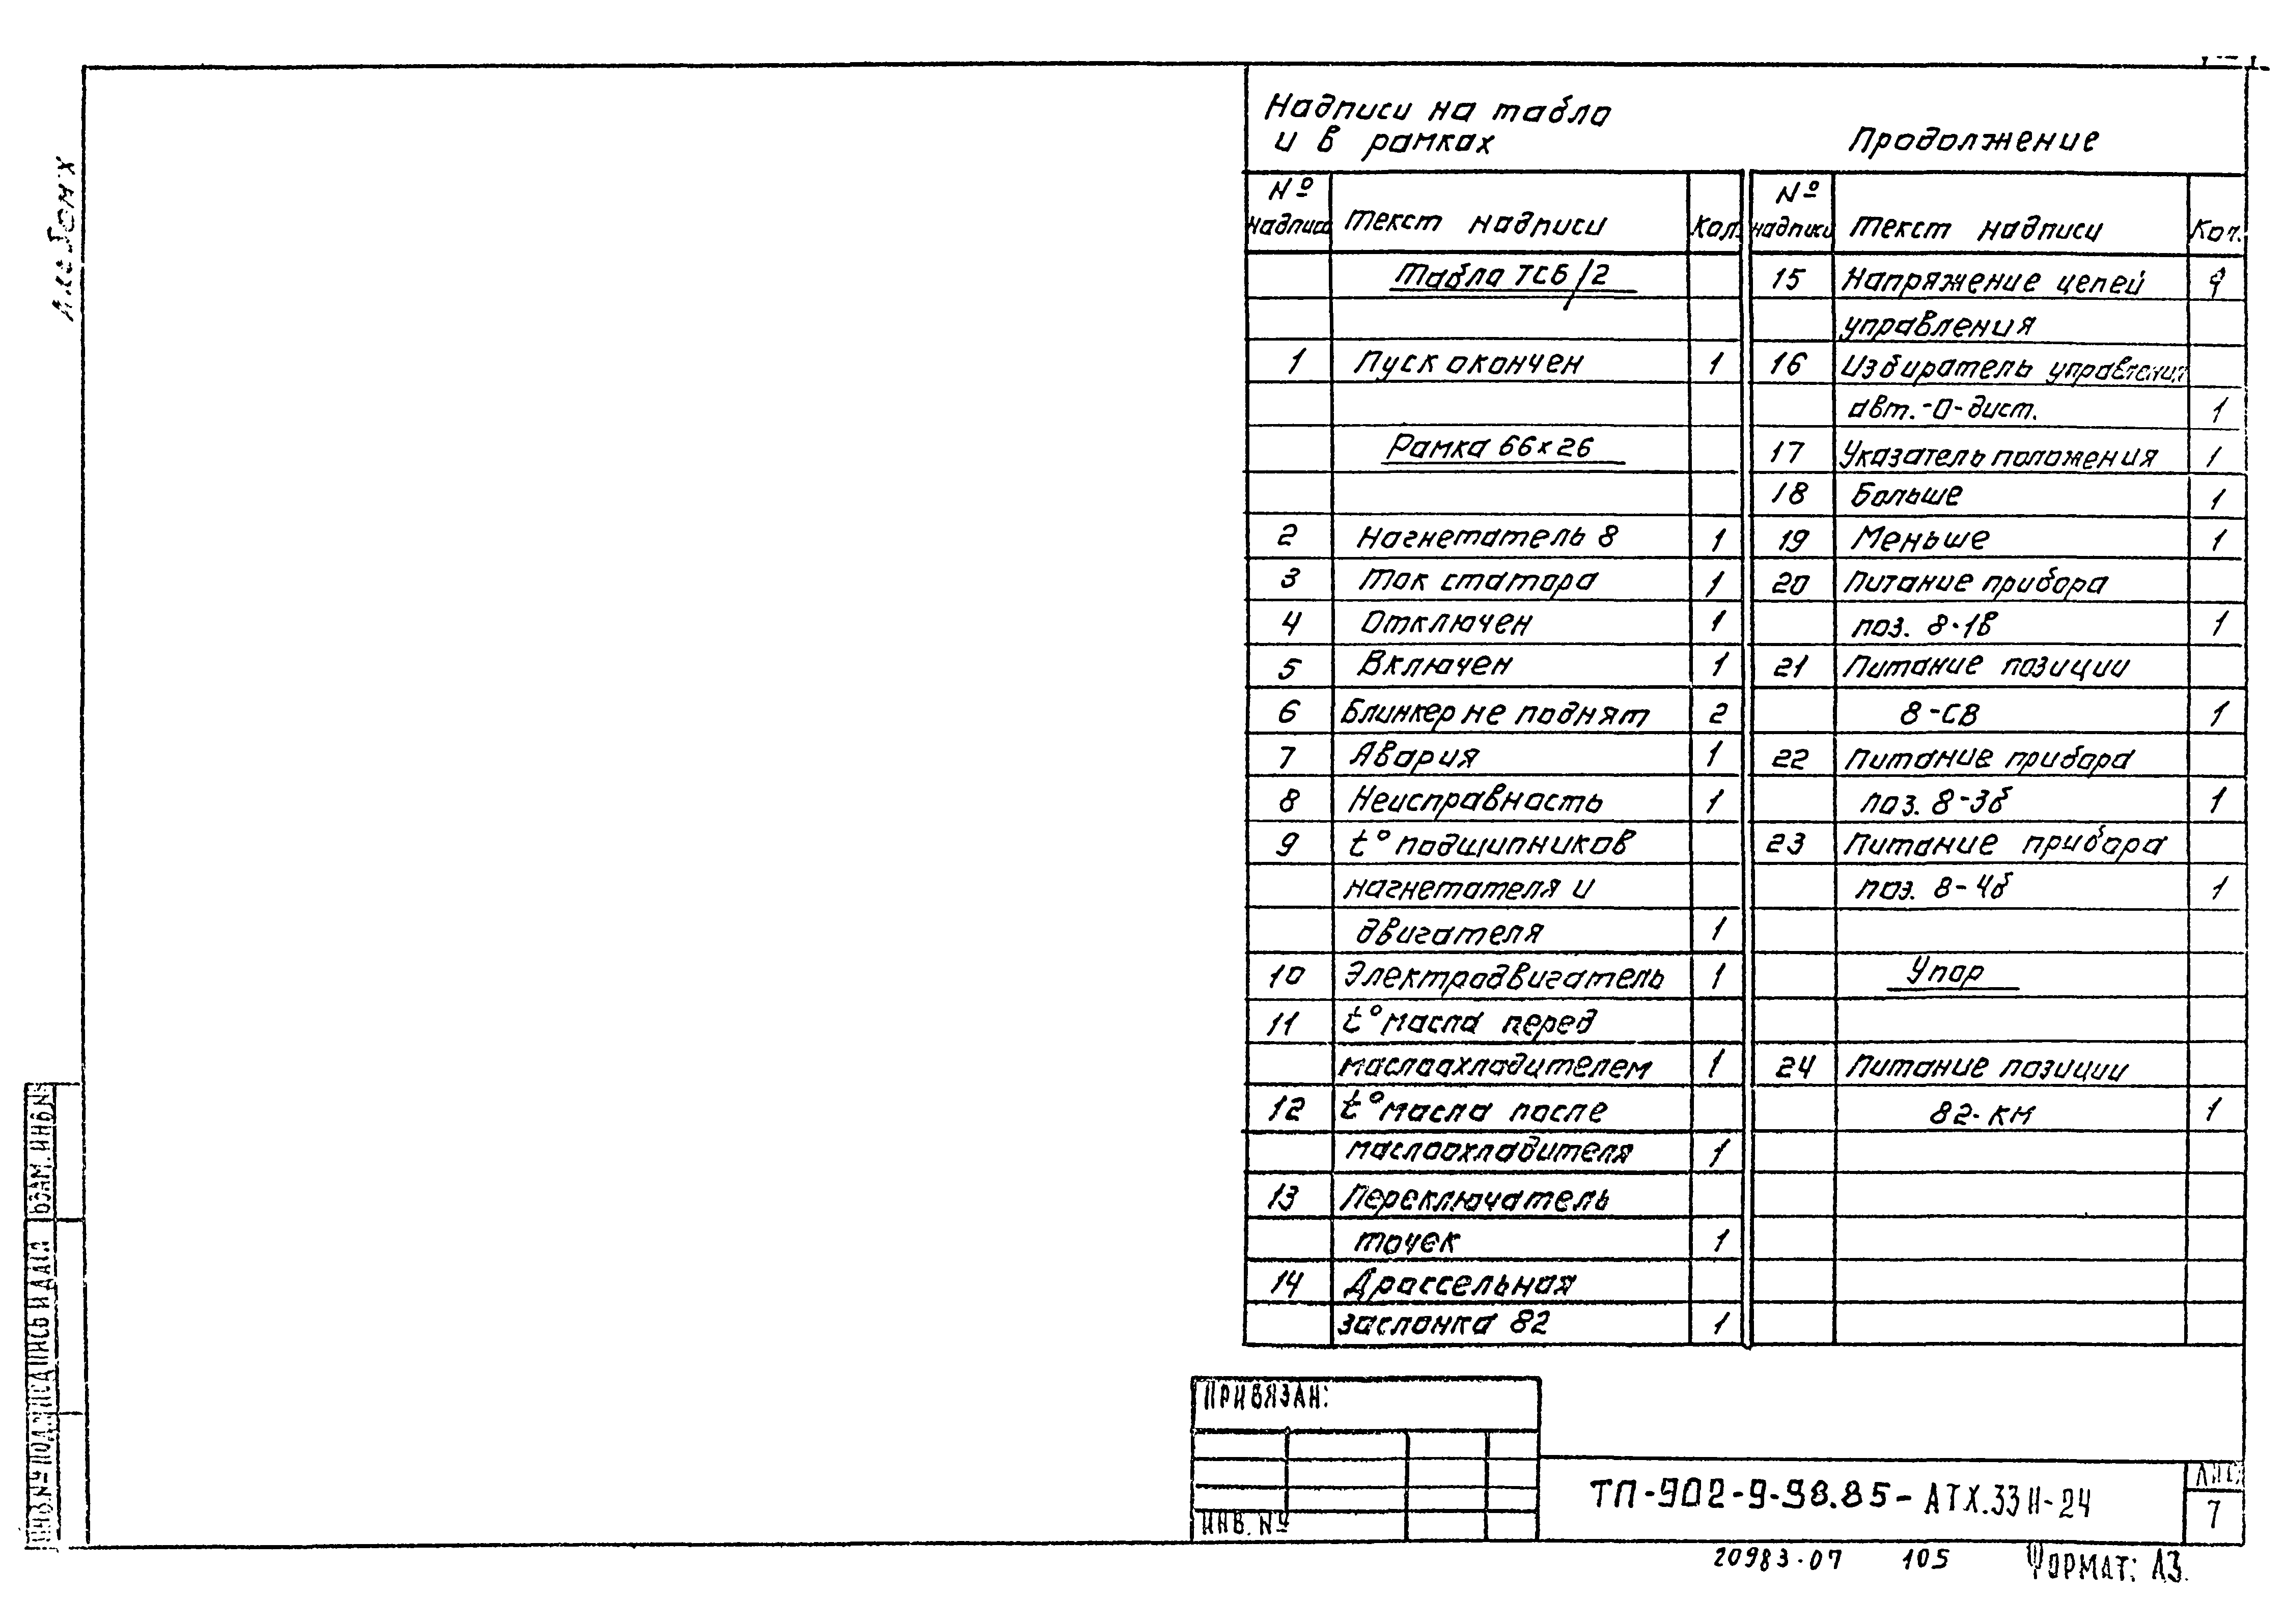 Надписи на табло
и в рамках
№ надписи Текст надписи Кол.
Табло ТСБ/2
1 Пуск окончен 1
Рамка 66x26
2 Нагнетатель 8 1
3 Ток статора 1
4 Отключен 1
5 Включен 1
6 Блинкер не поднят 2
7 Авария 1
8 Неисправность 1
9 t° подшипников
нагнетателя и
двигателя 1
10 Электродвигатель 1
11 t° масла перед
маслоохладителем 1
12 t° масла после
маслоохладителя 1
13 Переключатель
точек 1
14 Дроссельная
заслонка 82 1
Продолжение
№ надписи Текст надписи Кол.
15 Напряжение цепей
управления
16 Избиратель управления
авт.-О-дист. 1
17 Указатель положения 1
18 Больше 1
19 Меньше 1
20 Питание прибора
поз. 8-1в 1
21 Питание позиции
8-СВ 1
22 Питание прибора
поз. 8-3б 1
23 Питание прибора
поз. 8-4б 1
Упор
24 Питание позиции
82-КМ 1
ПРИВЯЗАН:
ИНВ. №
ТП-902-9-98.85-АТХ.33Н-24
ЛИСТ
7
20983-07 105 ФОРМАТ: А3
Альбом X
ВЗАМ. ИНВ. №
ПОДПИСЬ И ДАТА
ИНВ. № ПОДЛ.